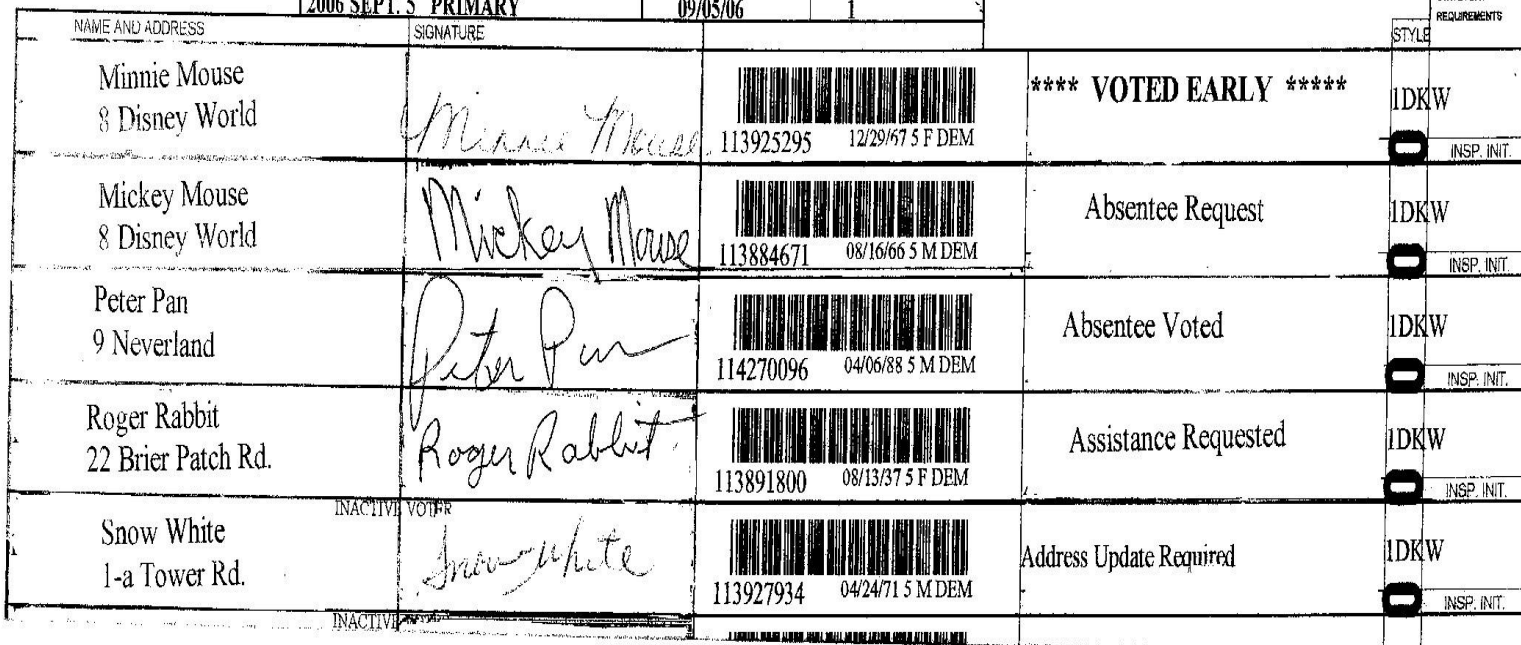 2006 SEPT. 5 PRIMARY 09/05/06 1
REQUIREMENTS
NAME AND ADDRESS SIGNATURE STYLE
Minnie Mouse
8 Disney World
Minnie Mouse
113925295 12/29/67 5 F DEM
**** VOTED EARLY *****
1DKW
INSP. INIT.
Mickey Mouse
8 Disney World
Mickey Mouse
113884671 08/16/66 5 M DEM
Absentee Request
1DKW
INSP. INIT.
Peter Pan
9 Neverland
Peter Pan
114270096 04/06/88 5 M DEM
Absentee Voted
1DKW
INSP. INIT.
Roger Rabbit
22 Brier Patch Rd.
Roger Rabbit
113891800 08/13/37 5 F DEM
Assistance Requested
1DKW
INSP. INIT.
INACTIVE VOTER
Snow White
1-a Tower Rd.
Snow White
113927934 04/24/71 5 M DEM
Address Update Required
1DKW
INSP. INIT.
INACTIVE